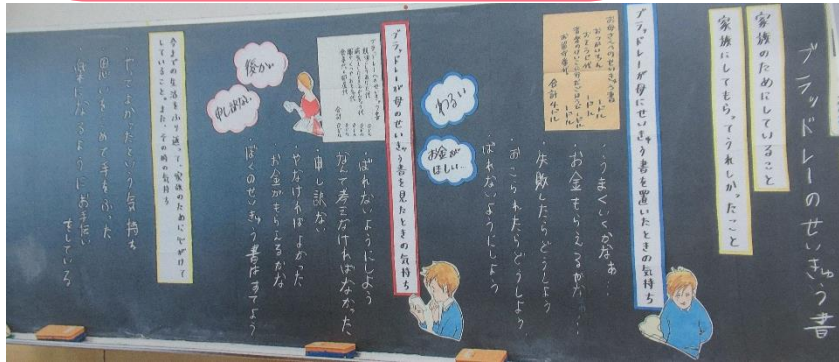 ブラッドレーのせいきゅう書
家族のためにしていること
家族にしてもらってうれしかったこと
ブラッドレーが母にせいきゅう書を置いたときの気持ち
お母さんへのせいきゅう書
合計 4ドル
わるい
お金が
ほしい…
・うまくいくかなぁ…
・お金もらえるかな…
・失敗したらどうしよう
・おこられたらどうしよう
・ばれないようにしよう
ブラッドレーが母のせいきゅう書を見たときの気持ち
合計 0ドル
後かい
申し訳ない
・ばれないようにしよう
・なんて考えなければよかった
・申し訳ない
・やらなければよかった
・お金がもらえるかな
・ぼくのせいきゅう書はすてよう
今までの生活をふり返って、家族のために心がけて
していること。また、その時の気持ち
・やってよかったという気持ち
・思いをこめて手をふいた
・楽になるようにお手伝い
をしている